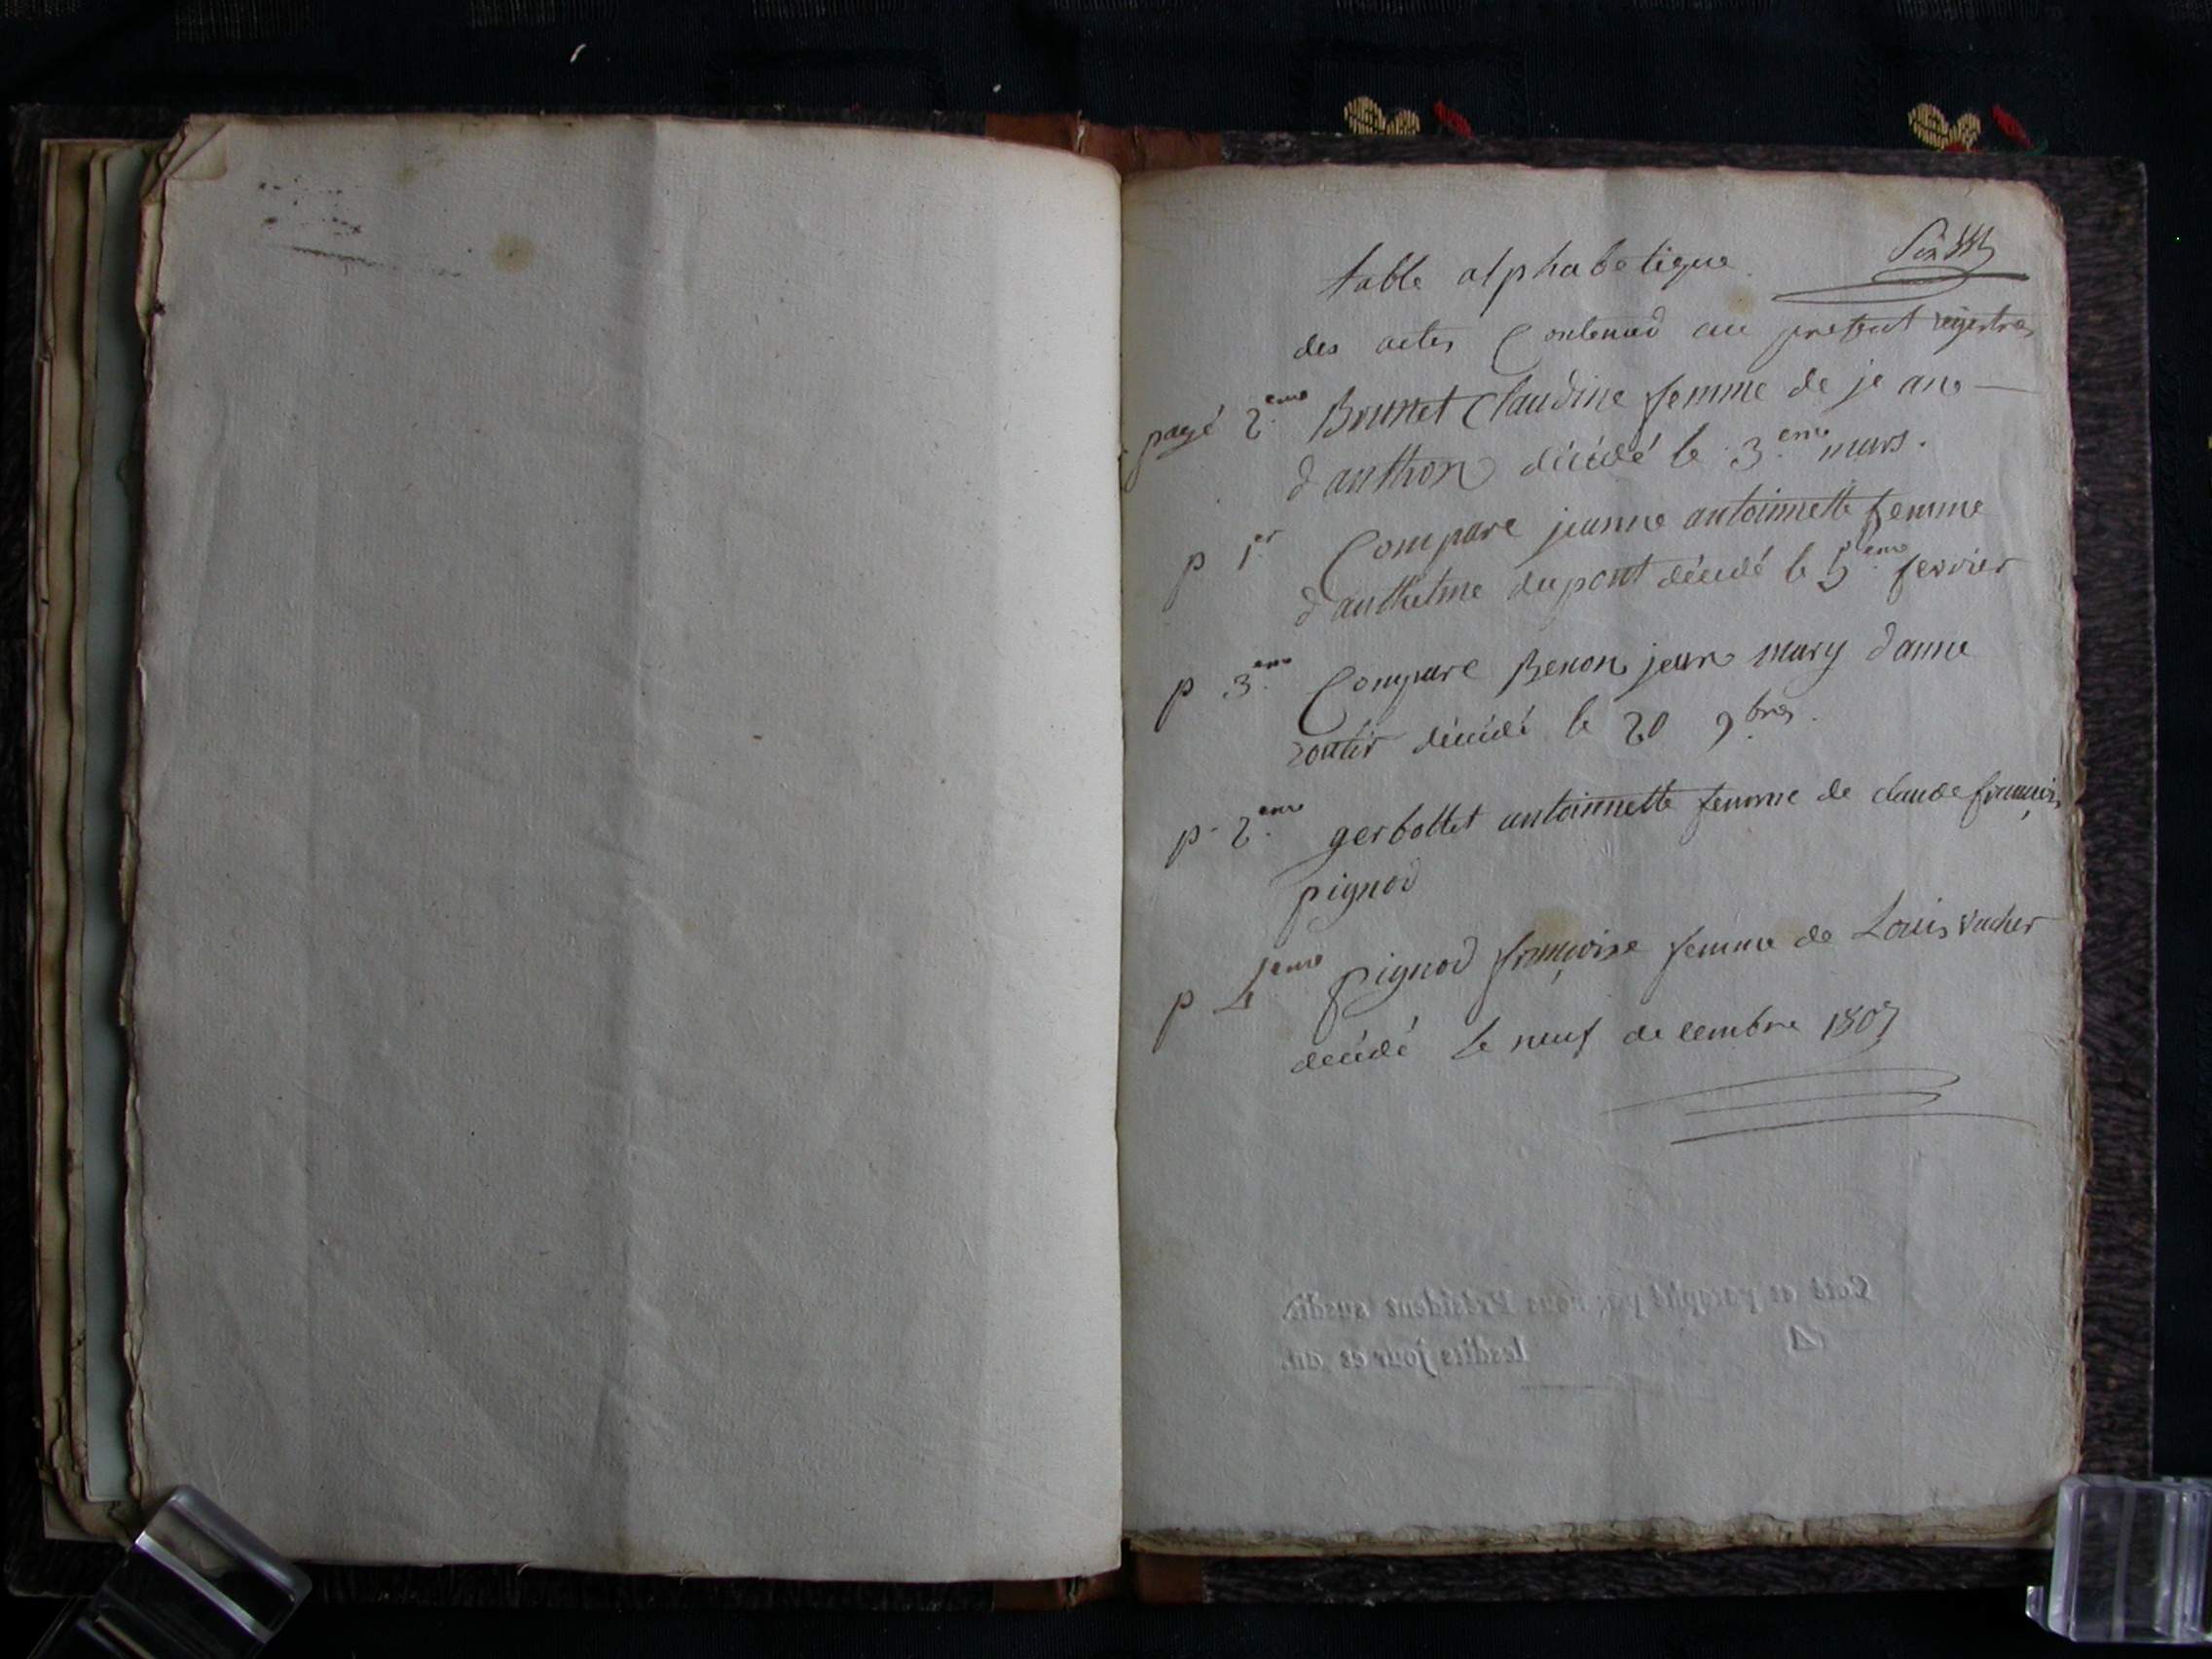 Six
table alphabetique
des actes Contenud au present registre
pagé 2.eme Brunet Claudine femme de jeane
danthon décédé le 3.eme mars.
p 1.er Compare jeanne antoinnette femme
d'anthelme dupont décédé le 5.eme fevrier
p 3.eme Compare Benon jean mary d'anne
routir décédé le 20 9.bres.
p. 2.eme gerbottet antoinnette femme de claude françois
pignod
p 4eme pignod françoise femme de Louis vucher
décédé le neuf decembre 1807
Coté et paraphé par nous Président susdit,
lesdits jour et an.